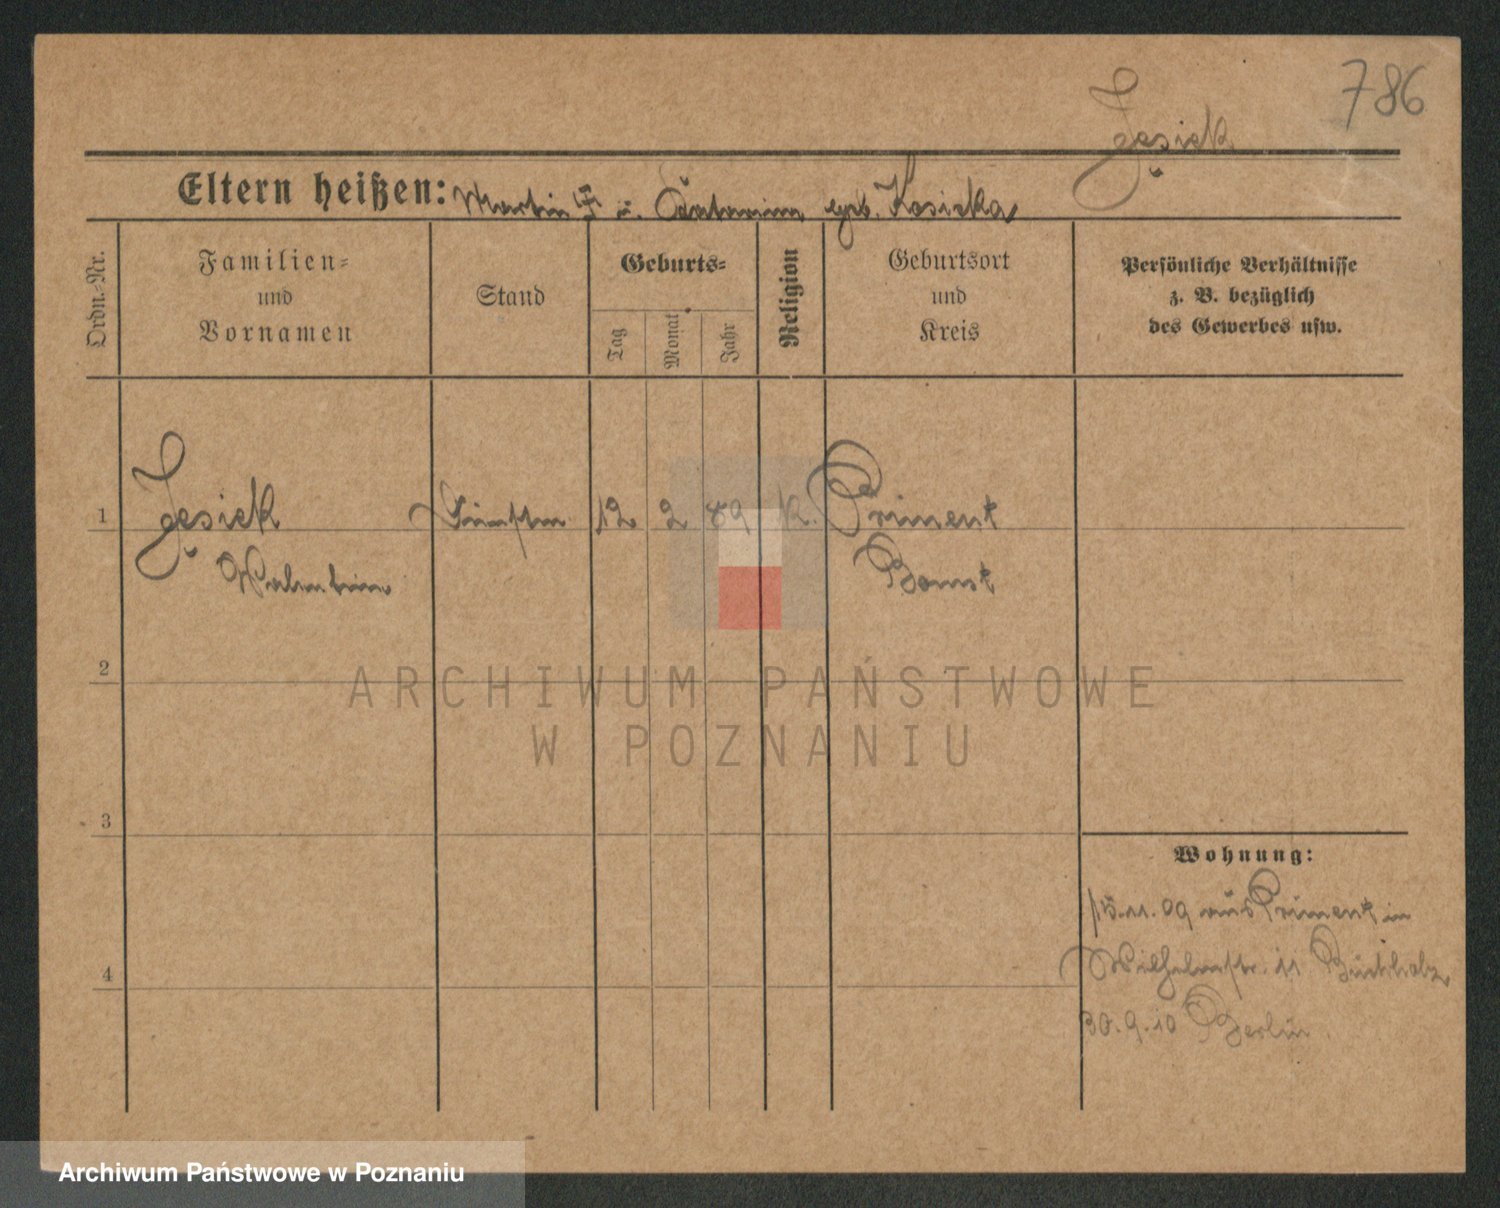 786
Jesiek
Eltern heißen: Martin u. Catarina geb. Kosicka
Ordn.-Nr.
Familien-
und
Vornamen
Stand
Geburts-
Tag
Monat
Jahr
Religion
Geburtsort
und
Kreis
Persönliche Verhältnisse
z. B. bezüglich
des Gewerbes usw.
1
Jesiek
12 2 89 k. Priment
Bomst
2
3
4
Wohnung:
15.11.09 aus Priment in
Wilhelmstr. 11
30.9.10 Berlin
ARCHIWUM PAŃSTWOWE
W POZNANIU
Archiwum Państwowe w Poznaniu